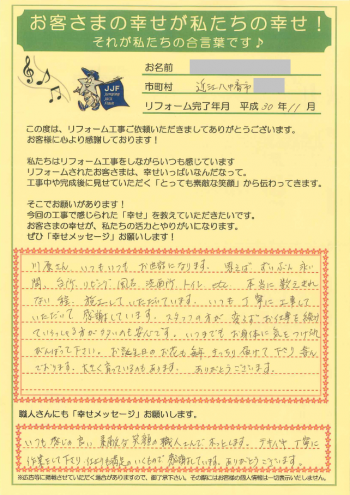 お客さまの幸せが私たちの幸せ！
それが私たちの合言葉です♪
JJF
お名前
市町村 近江八幡市
リフォーム完了年月 平成30年11月
この度は、リフォーム工事ご依頼いただきましてありがとうございます。
お客様に心より感謝しております！
私たちはリフォーム工事をしながらいつも感じています
リフォームされたお客さまは、幸せいっぱいなんだなって。
工事中や完成後に見せていただく「とっても素敵な笑顔」から伝わってきます。
そこでお願いがあります！
今回の工事で感じられた「幸せ」を教えていただきたいです。
お客さまの幸せが、私たちの活力とやりがいになります。
ぜひ「幸せメッセージ」お願いします！
いつもいつも お世話になります。 思えば ずいぶん 永い
間 台所、リビング、洗面所、トイレ etc 本当に数えきれ
ない 程 施工して いただいています。 いつも 丁寧に 工事して
いただいて 感謝しています。 スタッフの方が 変えず お仕事を 続け
いつまでも お身体に 気をつけて
がんばって下さい。 お誕生日の お花も 毎年 きっちり 届けて 下さり 喜ん
でおります。 大きく 育っているものもあります。 ありがとうございます。
職人さんにも「幸せメッセージ」お願いします。
いつも 感じの 良い 素敵な 笑顔の 職人さんで ホッとします。 テキパキ、丁寧に
作業をして下さり 仕上りも満足のいくもので 感謝しています。ありがとうございます。
※広告等に掲載させていただく場合がありますので、御了承下さい。その際にはお客様の個人情報は一切表示いたしません。